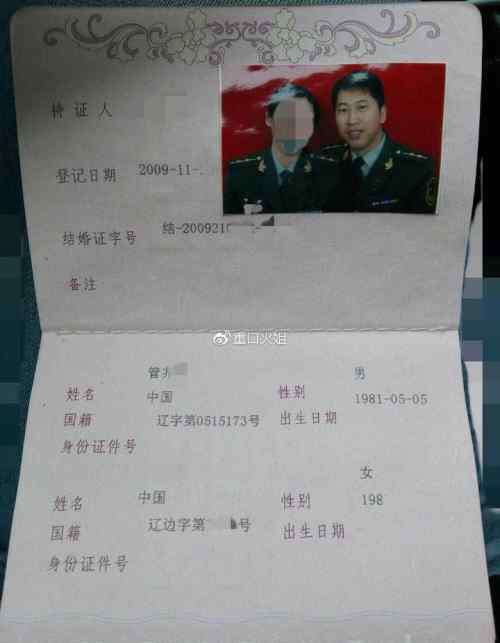 持证人
登记日期 2009-11-
结婚证字号 结-200921
备注
重口火姐
管
男
姓名 中国 性别 1981-05-05
国籍 辽字第0515173号 出生日期
身份证件号
女
姓名 中国 性别 198
国籍 辽边字第 号 出生日期
身份证件号